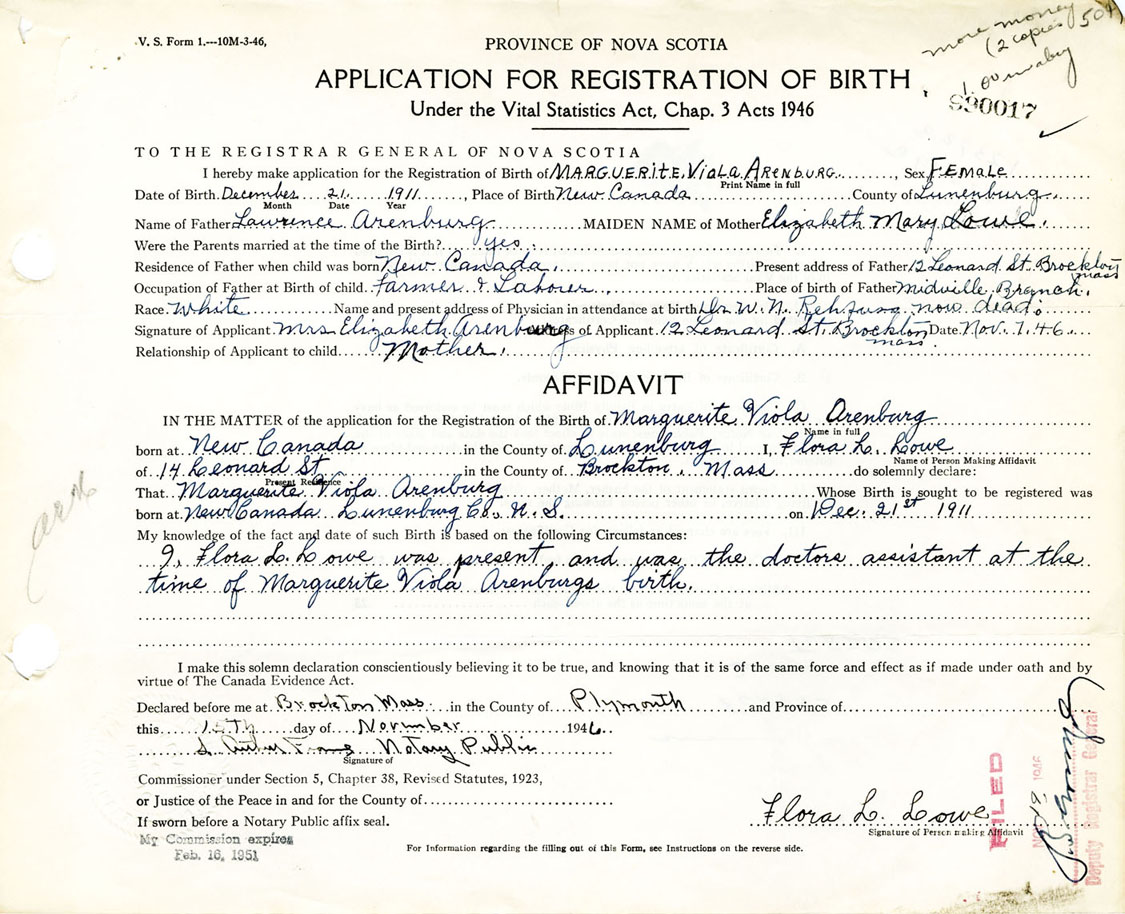 V. S. Form 1.---10M-3-46,
PROVINCE OF NOVA SCOTIA
more money 50¢
(2 copies
APPLICATION FOR REGISTRATION OF BIRTH
Under the Vital Statistics Act, Chap. 3 Acts 1946
S90017
TO THE REGISTRAR GENERAL OF NOVA SCOTIA
I hereby make application for the Registration of Birth of MARGUERITE VIOLA ARENBURG, Sex FEMALE
Print Name in full
Date of Birth December 21 1911, Place of Birth New Canada County of Lunenburg
Month Date Year
Name of Father Lawrence Arenburg MAIDEN NAME of Mother Elizabeth Mary Lowe.
Were the Parents married at the time of the Birth? yes.
Residence of Father when child was born New Canada. Present address of Father 12 Leonard St. Brockton
mass
Occupation of Father at Birth of child. Farmer & Laborer Place of birth of Father Midville Branch.
Race. White Name and present address of Physician in attendance at birth Dr W. N. now dead.
Signature of Applicant Mrs Elizabeth Arenburg ss of Applicant. 12 Leonard St. Brockton Date Nov. 7. 46
mass.
Relationship of Applicant to child. Mother.
AFFIDAVIT
IN THE MATTER of the application for the Registration of the Birth of Marguerite Viola Arenburg
Name in full
born at New Canada in the County of Lunenburg I, Flora L. Lowe
Name of Person Making Affidavit
of 14 Leonard St in the County of Brockton, Mass do solemnly declare:
Present Residence
That Marguerite Viola Arenburg Whose Birth is sought to be registered was
born at New Canada Lunenburg Co. N. S. on Dec. 21st 1911
My knowledge of the fact and date of such Birth is based on the following Circumstances:
I, Flora L. Lowe was present and was the doctors assistant at the
time of Marguerite Viola Arenburgs birth.
I make this solemn declaration conscientiously believing it to be true, and knowing that it is of the same force and effect as if made under oath and by
virtue of The Canada Evidence Act.
Declared before me at Brockton Mass in the County of Plymouth and Province of
this 15th day of November 1946.
Notary Public
Signature of
Commissioner under Section 5, Chapter 38, Revised Statutes, 1923,
or Justice of the Peace in and for the County of
If sworn before a Notary Public affix seal.
Flora L. Lowe
Signature of Person making Affidavit
My Commission expires
Feb. 16, 1951
For Information regarding the filling out of this Form, see Instructions on the reverse side.
FILED
NOV 19 1946
Deputy Registrar General